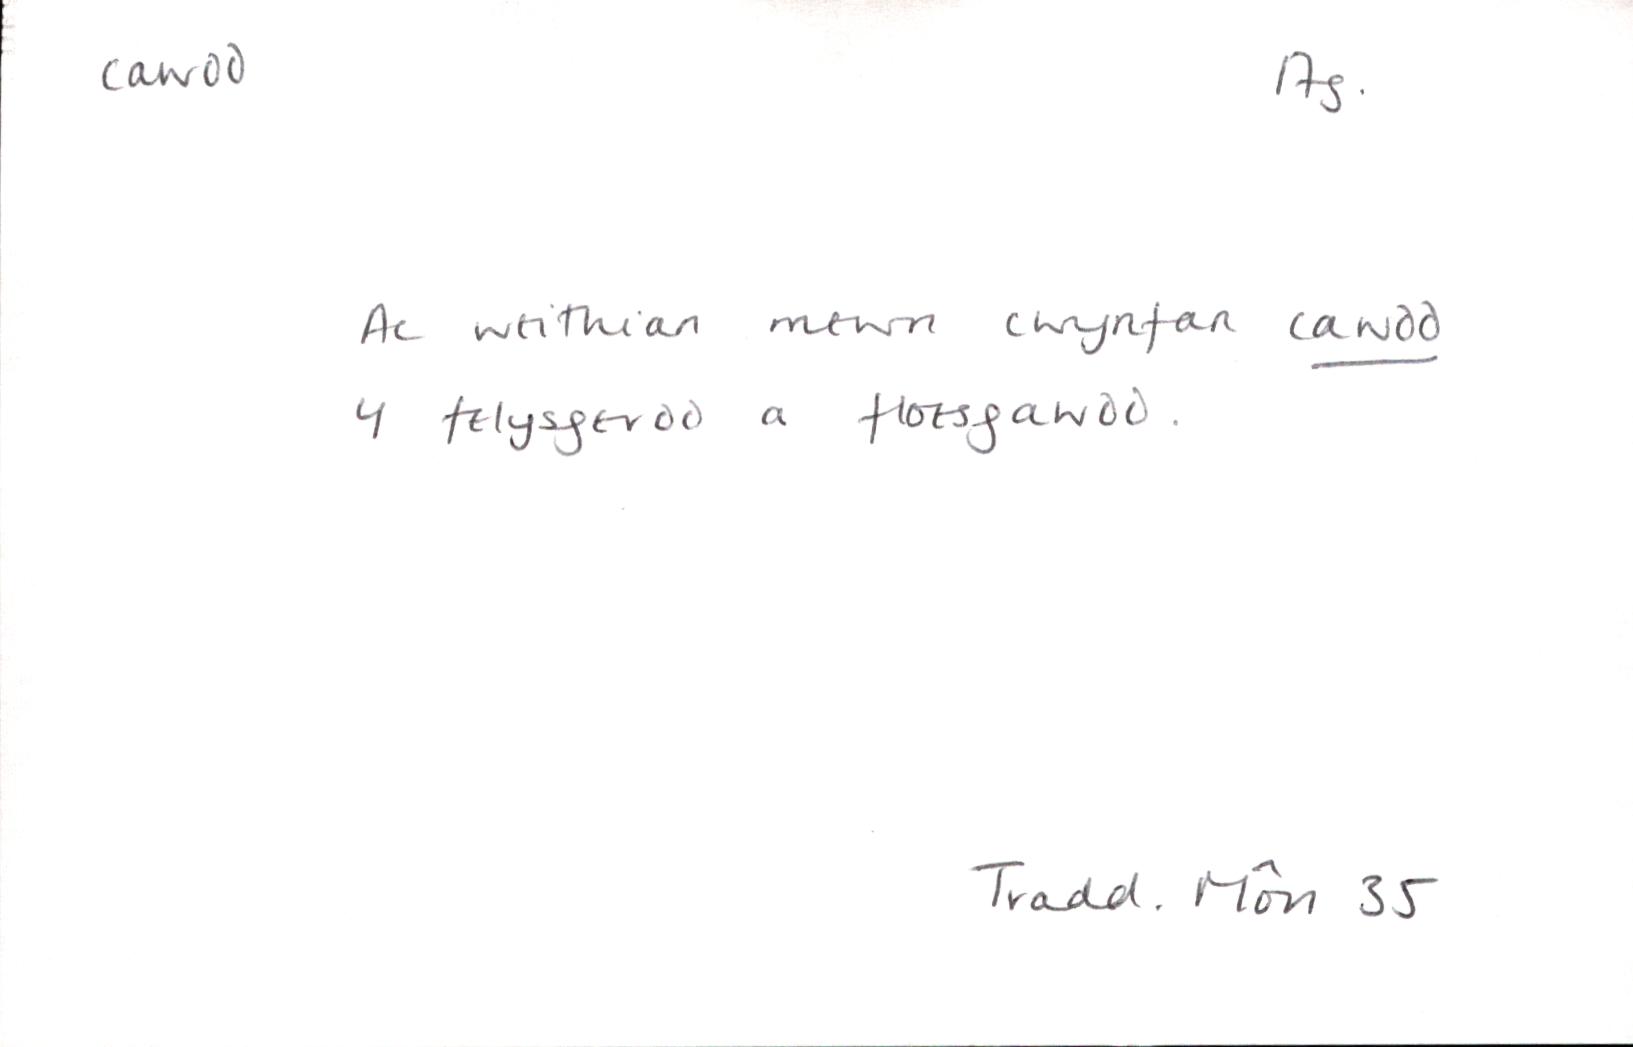 cawdd 17g.
Ac weithian mewn cwynfan cawdd
Y felysgerdd a floesgawdd.
Tradd. Môn 35